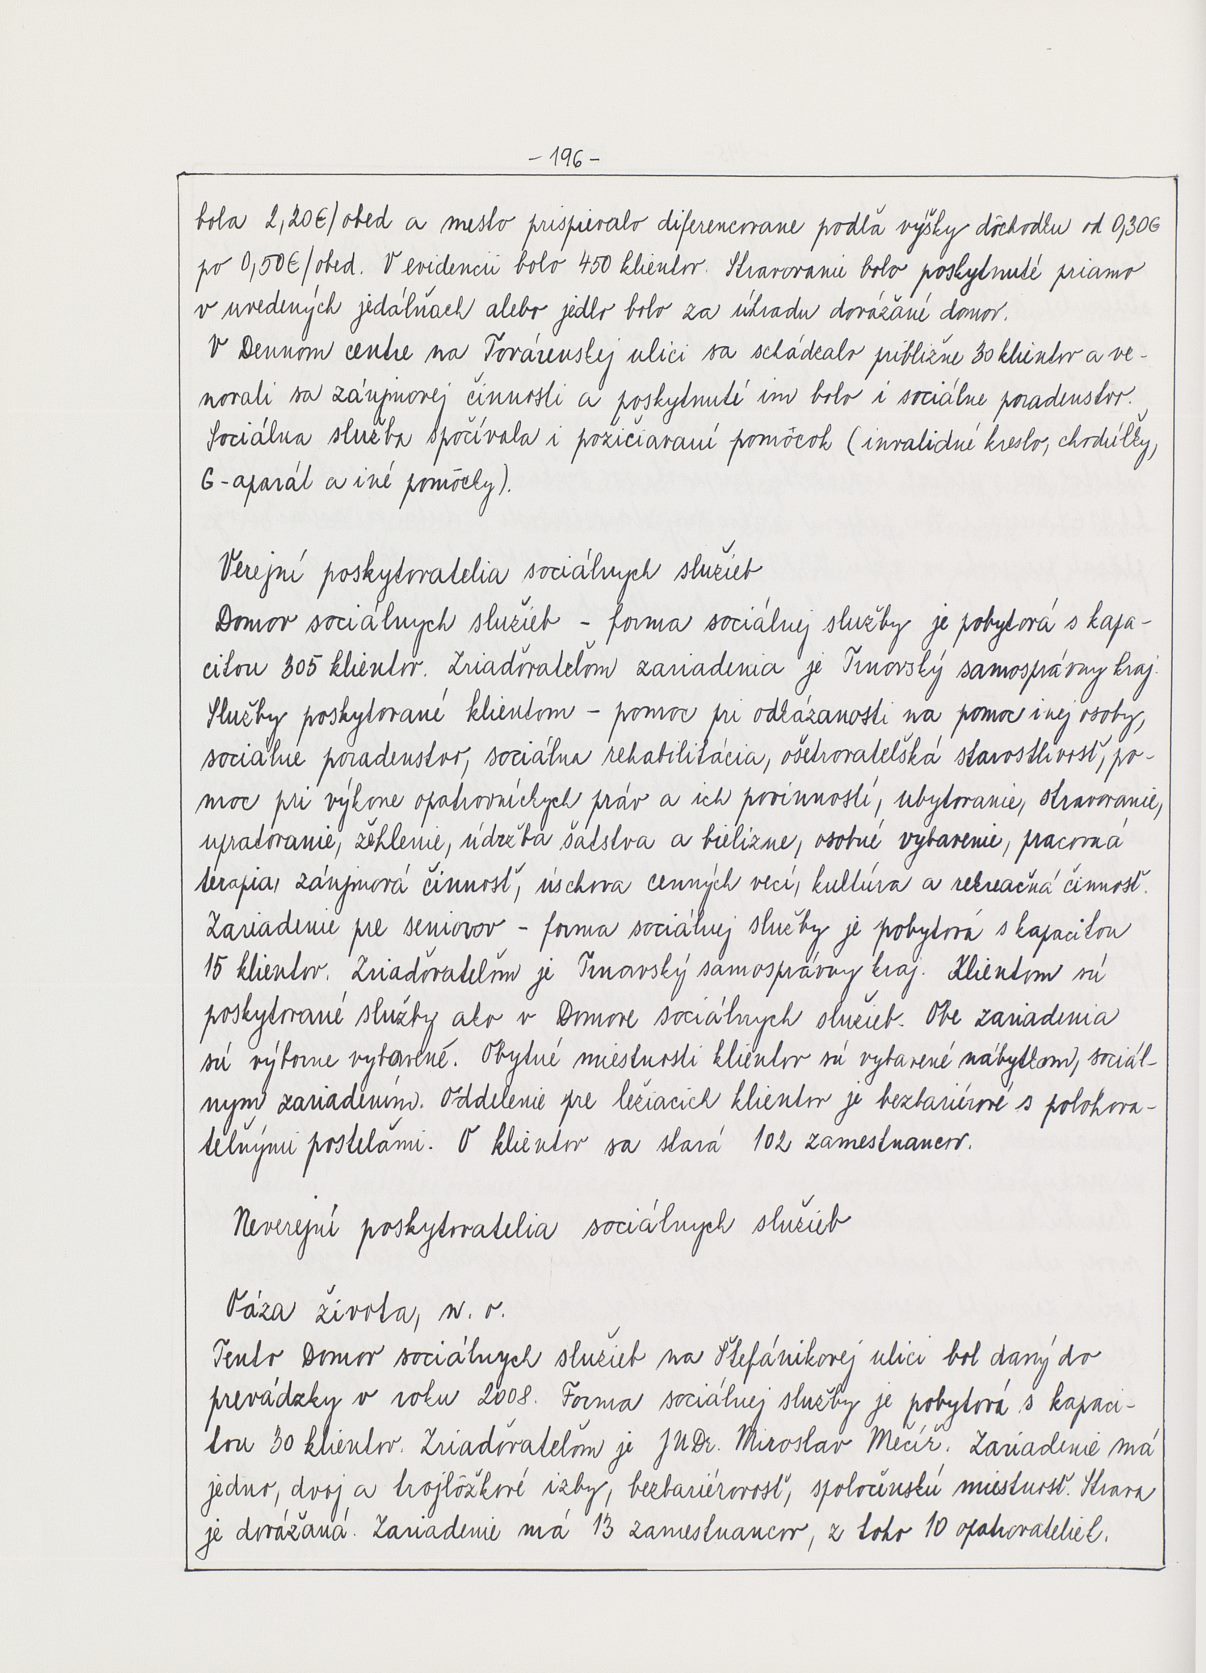 - 196 -
bola 2,20€/obed a mesto prispievalo diferencovane podľa výšky dôchodku od 0,30€
po 0,50€/obed. V evidencii bolo 450 klientov. Stravovanie bolo poskytnuté priamo
v uvedených jedálňach alebo jedlo bolo za úhradu dovážané domov.
V Dennom centre na Továrenskej ulici sa schádzalo približne 30 klientov a ve-
novali sa záujmovej činnosti a poskytnuté im bolo i sociálne poradenstvo.
Sociálna služba spočívala i požičiavaní pomôcok (invalidné kreslo, chodúľky,
G-aparát a iné pomôcky).
Verejní poskytovatelia sociálnych služieb
Domov sociálnych služieb - forma sociálnej služby je pobytová s kapa-
citou 305 klientov. Zriaďovateľom zariadenia je Trnavský samosprávny kraj.
Služby poskytované klientom - pomoc pri odkázanosti na pomoc inej osoby,
sociálne poradenstvo, sociálna rehabilitácia, ošetrovateľská starostlivosť, po-
moc pri výkone opatrovníckych práv a ich povinností, ubytovanie, stravovanie,
upratovanie, žehlenie, údržba šatstva a bielizne, osobné vybavenie, pracovná
terapia, záujmová činnosť, úschova cenných vecí, kultúra a rekreačná činnosť.
Zariadenie pre seniorov - forma sociálnej služby je pobytová s kapacitou
15 klientov. Zriaďovateľom je Trnavský samosprávny kraj. Klientom sú
poskytované služby ako v Domove sociálnych služieb. Obe zariadenia
sú výborne vybavené. Obytné miestnosti klientov sú vybavené nábytkom, sociál-
nym zariadením. Oddelenie pre ležiacich klientov je bezbariérové s polohova-
teľnými posteľami. O klientov sa stará 102 zamestnancov.
Neverejní poskytovatelia sociálnych služieb
Váza života, n. o.
Tento Domov sociálnych služieb na Štefánikovej ulici bol daný do
prevádzky v roku 2008. Forma sociálnej služby je pobytová s kapaci-
tou 30 klientov. Zriaďovateľom je JUDr. Miroslav Mečíř. Zariadenie má
jedno, dvoj a trojlôžkové izby, bezbariérovosť, spoločenskú miestnosť. Strava
je dovážaná. Zariadenie má 13 zamestnancov, z toho 10 opatrovateliek.